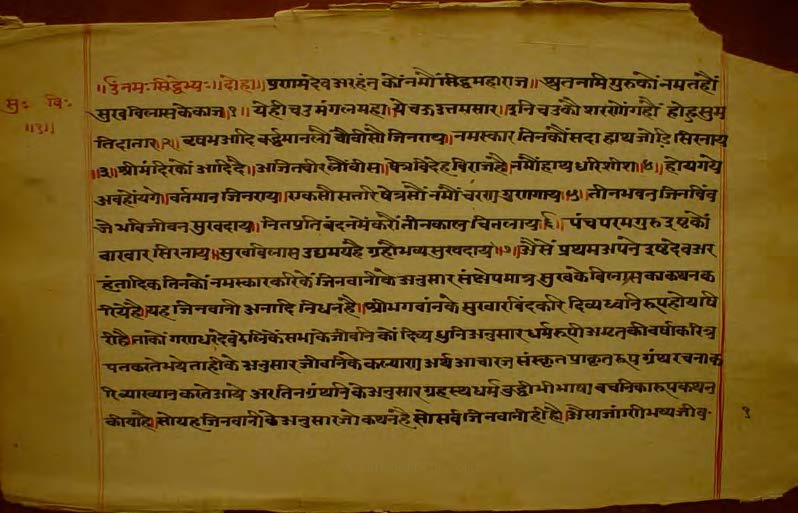 ॥ॐनमःसिद्धेभ्यः॥दोहा॥प्रणामंदेवअरहंतकोंनमौंसिद्धमहाराज॥श्रुतनमिगुरुकोंनमतहौं
सुः विः
सुखविलासकेकाज१॥येहीचउमंगलमहायेचऊउत्तमसार॥इनिचउकौशरणोंगहौं होहुसुम
॥१॥
तिदातार॥२॥ वृषभआदिवर्द्धमानलौंचौवीसौजिनराय॥नमस्कारतिनकौंसदाहाथजोडिसिरनाय
॥३॥श्रीमंदिरकोंआदिदै॥अजितवीरलौंवीस॥षेत्रविदेहविराजहै॥नमौंहाथधरिशीश॥४॥होयगये
अवहोंयगे॥वर्तमानजिनराय॥एकसौसत्तरिषेत्रसौंनमौंचरणगुणगाय॥५॥तीनभवनजिनविंव
जेभविजीवनसुखदाय॥नितप्रतिवंदनमेंकरौंतीनकालचितलाय॥६॥ पंचपरमगुरुइष्टकों
वारवारसिरनाय॥सुखविलासउद्यमयहैग्रहौभव्यसुखदाय॥७॥अैसेंप्रथमअपनेइष्टदेवअर
हंतादिकतिनकोंनमस्कारकरिकेंजिनवानीकेअनुसारसंक्षेपमात्रसुखकेविलासकाकथनक
रियेहै॥यहजिनवानीअनादिनिधनहै॥श्रीभगवांनकेमुखारविंदकरिदिव्यध्वनिरूपहोयषि
रीहै॥ताकोंगणधरदेव सभाकेजीवनिकोंदिव्यधुनिअनुसारधर्मरूपीअमृतकीवर्षाकरितृ
पतकरतेभयेताहीकेअनुसारजीवनिकेकल्याणअर्थआचारजसंस्कृतप्राकृतरूपग्रंथरचनाक
रिव्याख्यानकरतेआयेअरतिनग्रंथनिकेअनुसारग्रहस्थधर्मबुद्धीभीभाषावचनिकारूपकथन
कीयाहै॥सोयहजिनवानीकेअनुसारजोकथनहैसोसर्वजिनवानीहीहै॥अैसाजांणीभव्यजीव
१